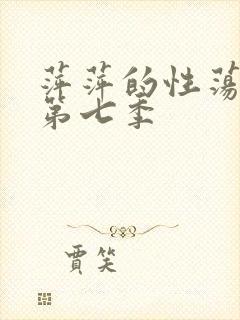 萍萍的性荡
第七季
賈笑